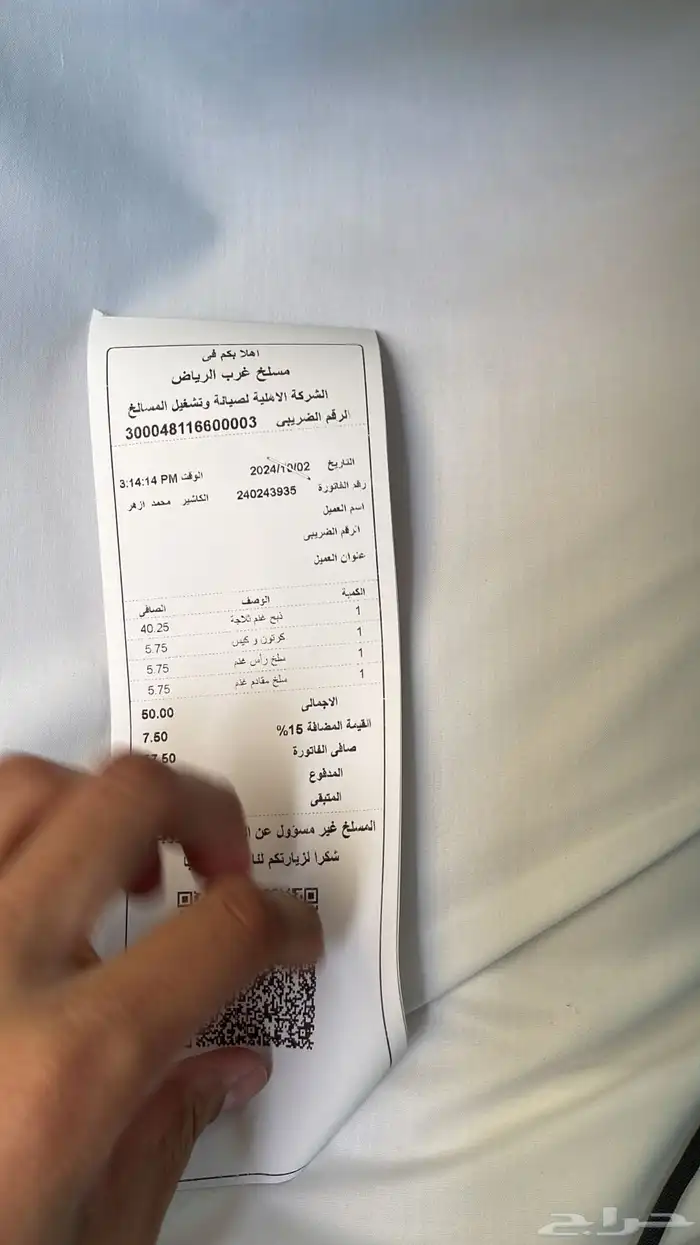 اهلا بكم فى
مسلخ غرب الرياض
الشركة الاهلية لصيانة وتشغيل المسالخ
الرقم الضريبى 300048116600003
التاريخ 2024/10/02 الوقت 3:14:14 PM
رقم الفاتورة 240243935 الكاشير محمد ازهر
اسم العميل
الرقم الضريبى
عنوان العميل
الكمية الوصف الصافى
1 ذبح غنم ثلاجة 40.25
1 كرتون و كيس 5.75
1 سلخ رأس غنم 5.75
1 سلخ مقادم غنم 5.75
الاجمالى 50.00
القيمة المضافة 15% 7.50
صافى الفاتورة 7.50
المدفوع
المتبقى
المسلخ غير مسؤول عن
شكرا لزيارتكم لنا
حراج